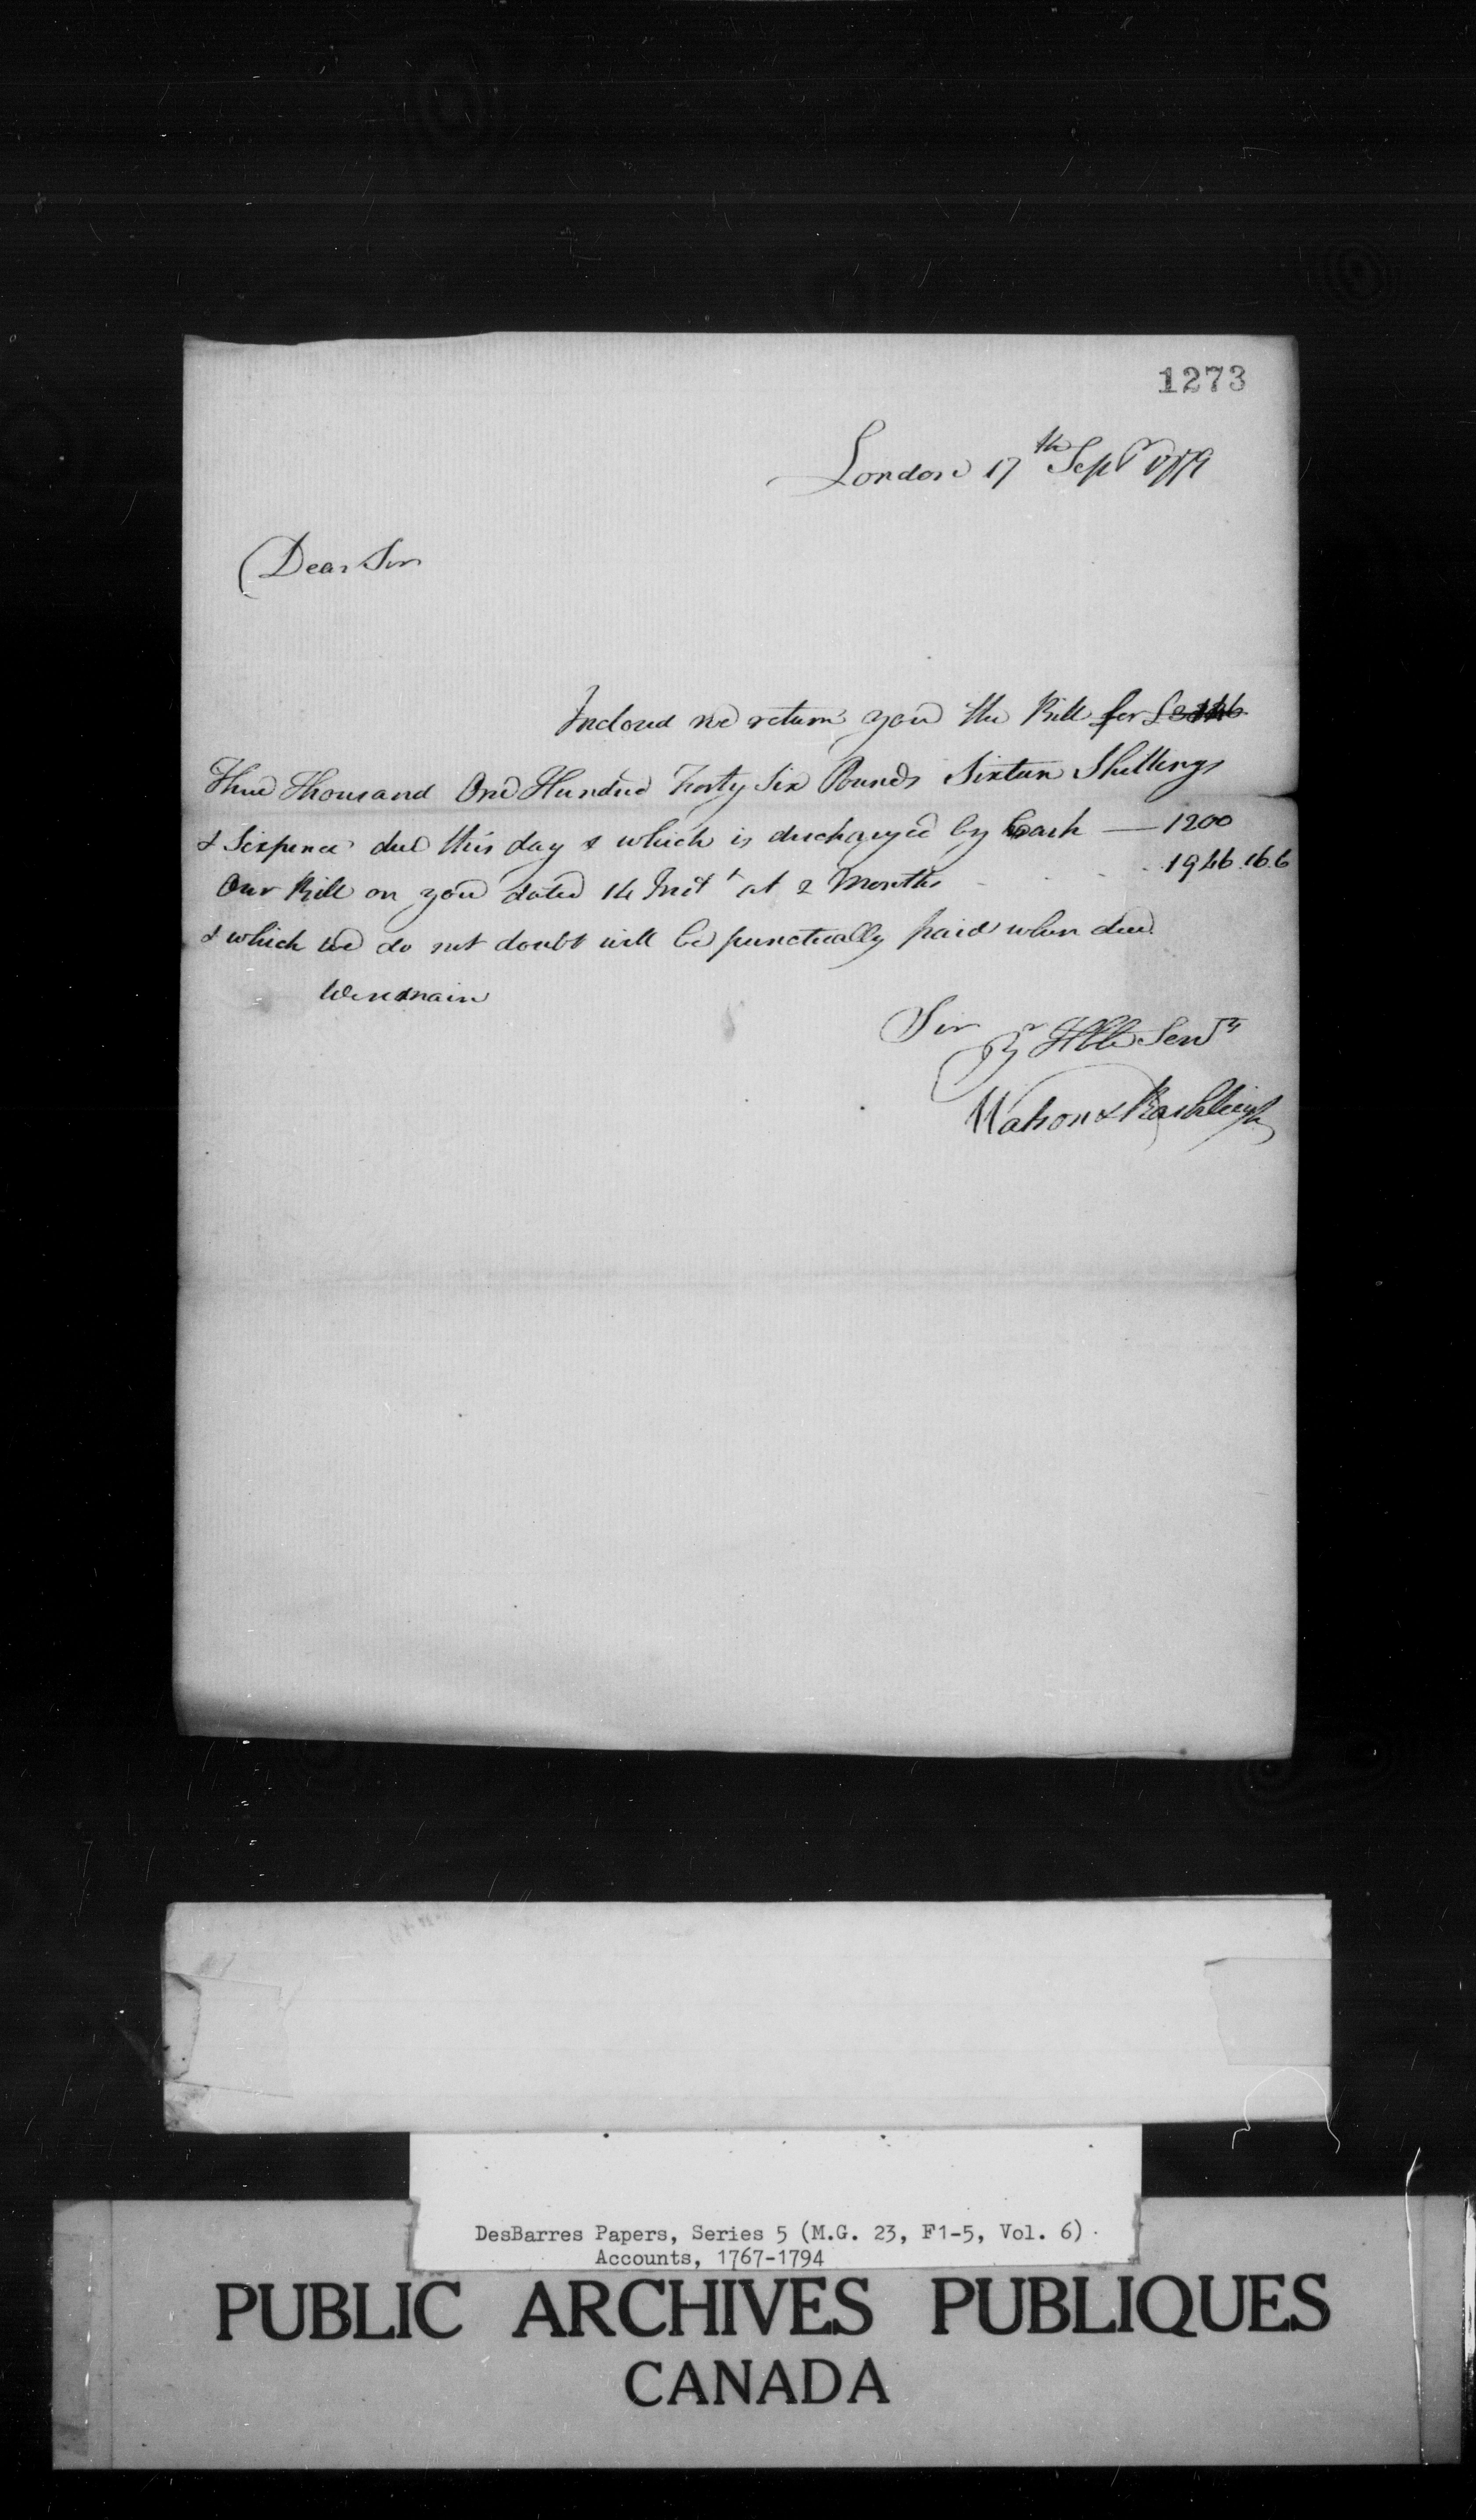 1273
London 17th Sepr 1779
Dear Sir
Inclosed we return you the Bill for £3146
Three Thousand One Hundred Forty Six Pounds Sixteen Shillings
& Sixpence due this day & which is discharged by Cash — 1200
Our Bill on you dated 14 Inst at 2 Months - - - 1946.16.6
& which we do not doubt will be punctually paid when due.
We remain
Sir
Yr Hble Servts
Watson & Rashleigh
DesBarres Papers, Series 5 (M.G. 23, F1-5, Vol. 6).
Accounts, 1767-1794
PUBLIC ARCHIVES PUBLIQUES
CANADA